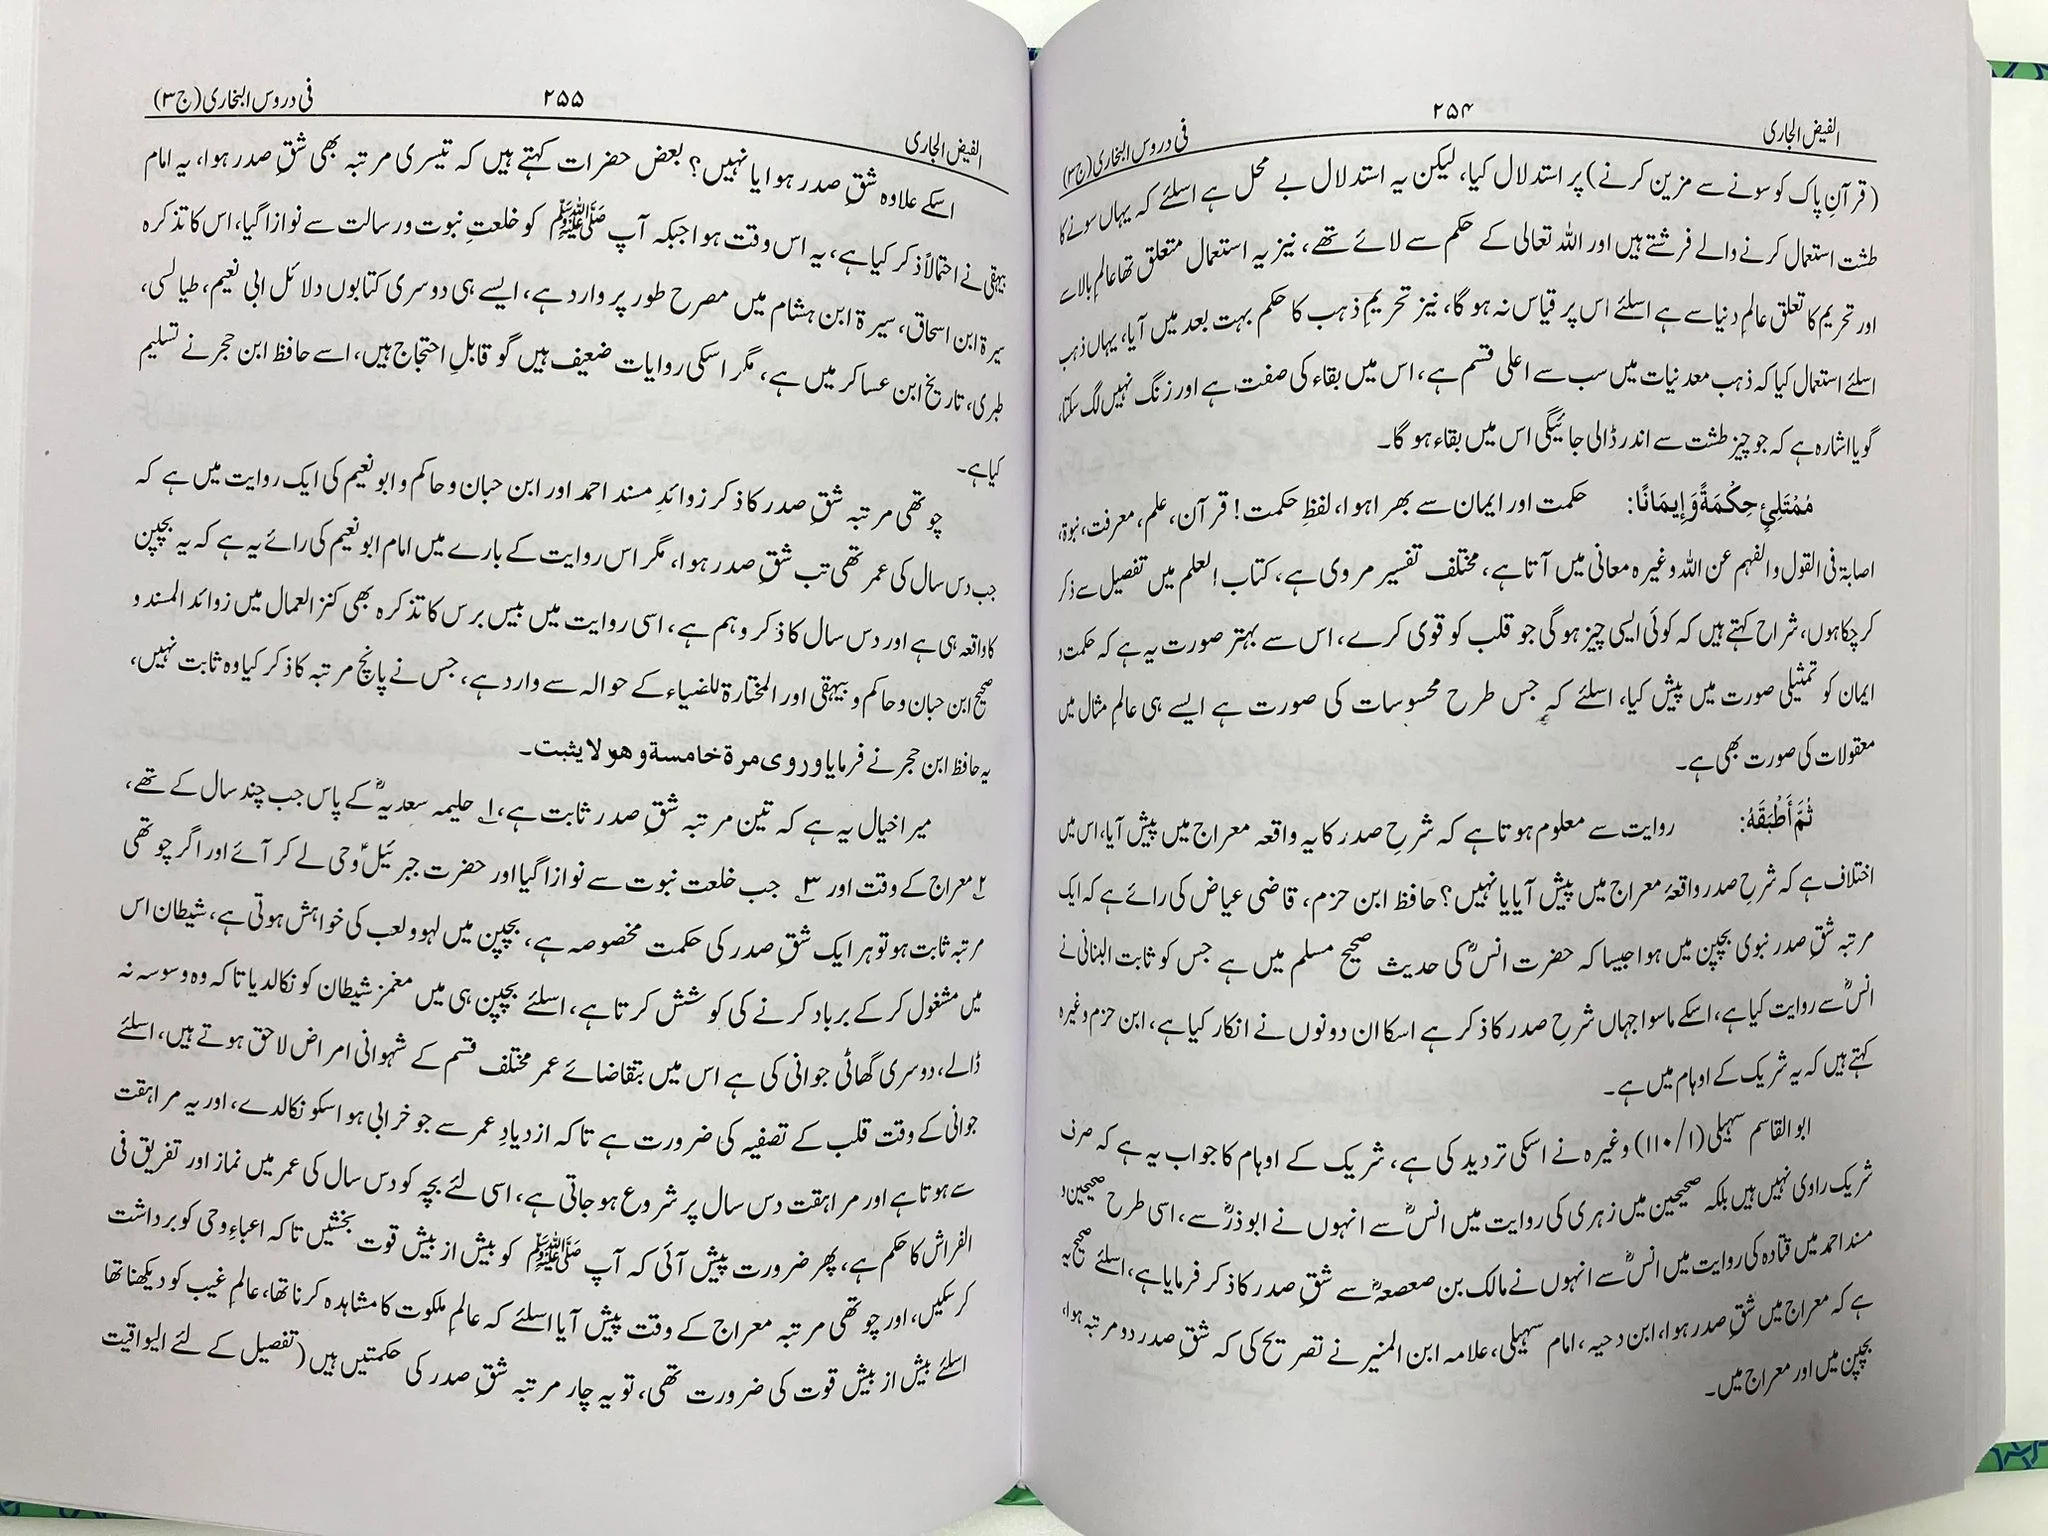 الفیض الجاری ۲۵۴ فی دروس البخاری (ج۳)
(قرآنِ پاک کو سونے سے مزین کرنے) پر استدلال کیا، لیکن یہ استدلال بے محل ہے اسلئے کہ یہاں سونے کا
طشت استعمال کرنے والے فرشتے ہیں اور اللہ تعالی کے حکم سے لائے تھے، نیز یہ استعمال متعلق تھا عالمِ بالا سے
اور تحریم کا تعلق عالمِ دنیا سے ہے اسلئے اس پر قیاس نہ ہو گا، نیز تحریمِ ذہب کا حکم بہت بعد میں آیا، یہاں ذہب
اسلئے استعمال کیا کہ ذہب معدنیات میں سب سے اعلی قسم ہے، اس میں بقاء کی صفت ہے اور زنگ نہیں لگ سکتا،
گویا اشارہ ہے کہ جو چیز طشت سے اندر ڈالی جائیگی اس میں بقاء ہو گا۔
مُمْتَلِئٍ حِكْمَةً وَإِيمَانًا: حکمت اور ایمان سے بھرا ہوا، لفظِ حکمت! قرآن، علم، معرفت، نبوۃ،
اصابۃ فی القول والفہم عن اللہ وغیرہ معانی میں آتا ہے، مختلف تفسیر مروی ہے، کتاب العلم میں تفصیل سے ذکر
کر چکا ہوں، شراح کہتے ہیں کہ کوئی ایسی چیز ہو گی جو قلب کو قوی کرے، اس سے بہتر صورت یہ ہے کہ حکمت و
ایمان کو تمثیلی صورت میں پیش کیا، اسلئے کہ جس طرح محسوسات کی صورت ہے ایسے ہی عالم مثال میں
معقولات کی صورت بھی ہے۔
ثُمَّ أَطْبَقَهُ: روایت سے معلوم ہوتا ہے کہ شرحِ صدر کا یہ واقعہ معراج میں پیش آیا، اس میں
اختلاف ہے کہ شرحِ صدر واقعۂ معراج میں پیش آیا یا نہیں؟ حافظ ابن حزم، قاضی عیاض کی رائے ہے کہ ایک
مرتبہ شقِ صدر نبوی بچپن میں ہوا جیسا کہ حضرت انسؓ کی حدیث صحیح مسلم میں ہے جس کو ثابت البنانی نے
انسؓ سے روایت کیا ہے، اسکے ماسوا جہاں شرحِ صدر کا ذکر ہے اسکا ان دونوں نے انکار کیا ہے، ابن حزم وغیرہ
کہتے ہیں کہ یہ شریک کے اوہام میں ہے۔
ابوالقاسم سہیلی (۱/۱۱۰) وغیرہ نے اسکی تردید کی ہے، شریک کے اوہام کا جواب یہ ہے کہ صرف
شریک راوی نہیں ہیں بلکہ صحیحین میں زہری کی روایت میں انسؓ سے انہوں نے ابوذرؓ سے، اسی طرح صحیحین و
مسند احمد میں قتادہ کی روایت میں انسؓ سے انہوں نے مالک بن صعصعہؓ سے شقِ صدر کا ذکر فرمایا ہے، اسلئے صحیح یہ
ہے کہ معراج میں شقِ صدر ہوا، ابن دحیہ، امام سہیلی، علامہ ابن المنیر نے تصریح کی کہ شقِ صدر دو مرتبہ ہوا،
بچپن میں اور معراج میں۔
الفیض الجاری ۲۵۵ فی دروس البخاری (ج۳)
اسکے علاوہ شقِ صدر ہوا یا نہیں؟ بعض حضرات کہتے ہیں کہ تیسری مرتبہ بھی شقِ صدر ہوا، یہ امام
بیہقی نے احتمالاً ذکر کیا ہے، یہ اس وقت ہوا جبکہ آپ ﷺ کو خلعتِ نبوت ورسالت سے نوازا گیا، اس کا تذکرہ
سیرۃ ابن اسحاق، سیرۃ ابن ہشام میں مصرح طور پر وارد ہے، ایسے ہی دوسری کتابوں دلائل ابی نعیم، طیالسی،
طبری، تاریخ ابن عساکر میں ہے، مگر اسکی روایات ضعیف ہیں گو قابلِ احتجاج ہیں، اسے حافظ ابن حجر نے تسلیم
کیا ہے۔
چوتھی مرتبہ شقِ صدر کا ذکر زوائدِ مسند احمد اور ابن حبان وحاکم وابونعیم کی ایک روایت میں ہے کہ
جب دس سال کی عمر تھی تب شقِ صدر ہوا، مگر اس روایت کے بارے میں امام ابونعیم کی رائے یہ ہے کہ یہ بچپن
کا واقعہ ہی ہے اور دس سال کا ذکر وہم ہے، اسی روایت میں بیس برس کا تذکرہ بھی کنز العمال میں زوائد المسند و
صحیح ابن حبان وحاکم وبیہقی اور المختارۃ للضیاء کے حوالہ سے وارد ہے، جس نے پانچ مرتبہ کا ذکر کیا وہ ثابت نہیں،
یہ حافظ ابن حجر نے فرمایا وروی مرة خامسة وهو لا يثبت۔
میرا خیال یہ ہے کہ تین مرتبہ شقِ صدر ثابت ہے، ۱؂ حلیمہ سعدیہؓ کے پاس جب چند سال کے تھے،
۲؂ معراج کے وقت اور ۳؂ جب خلعت نبوت سے نوازا گیا اور حضرت جبرئیلؑ وحی لے کر آئے اور اگر چوتھی
مرتبہ ثابت ہو تو ہر ایک شقِ صدر کی حکمت مخصوصہ ہے، بچپن میں لہو ولعب کی خواہش ہوتی ہے، شیطان اس
میں مشغول کر کے برباد کرنے کی کوشش کرتا ہے، اسلئے بچپن ہی میں مغمز شیطان کو نکالدیا تاکہ وہ وسوسہ نہ
ڈالے، دوسری گھاٹی جوانی کی ہے اس میں بتقاضائے عمر مختلف قسم کے شہوانی امراض لاحق ہوتے ہیں، اسلئے
جوانی کے وقت قلب کے تصفیہ کی ضرورت ہے تاکہ ازدیادِ عمر سے جو خرابی ہو اسکو نکالدے، اور یہ مراہقت
سے ہوتا ہے اور مراہقت دس سال پر شروع ہو جاتی ہے، اسی لئے بچہ کو دس سال کی عمر میں نماز اور تفریق فی
الفراش کا حکم ہے، پھر ضرورت پیش آئی کہ آپ ﷺ کو بیش از بیش قوت بخشیں تاکہ اعباءِ وحی کو برداشت
کر سکیں، اور چوتھی مرتبہ معراج کے وقت پیش آیا اسلئے کہ عالمِ ملکوت کا مشاہدہ کرنا تھا، عالمِ غیب کو دیکھنا تھا
اسلئے بیش از بیش قوت کی ضرورت تھی، تو یہ چار مرتبہ شقِ صدر کی حکمتیں ہیں (تفصیل کے لئے الیواقیت